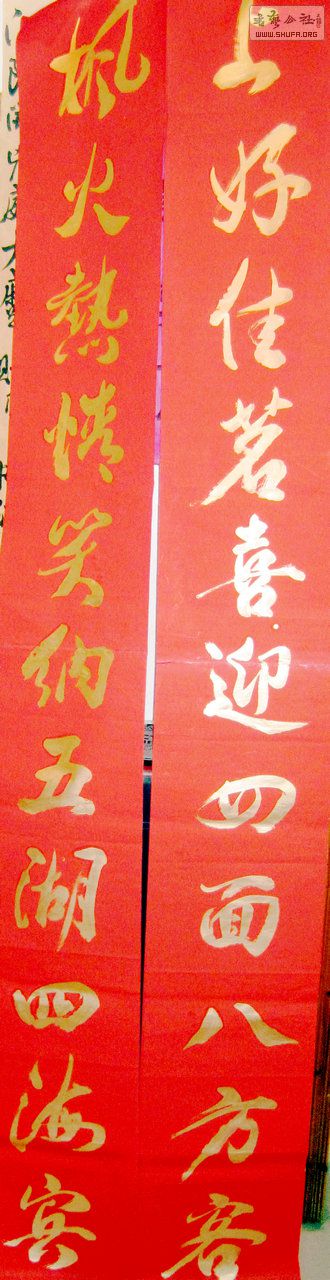 上好佳茗喜迎四面八方客
枫火熱情笑纳五湖四海宾
書藝公社
WWW.SHUFA.ORG